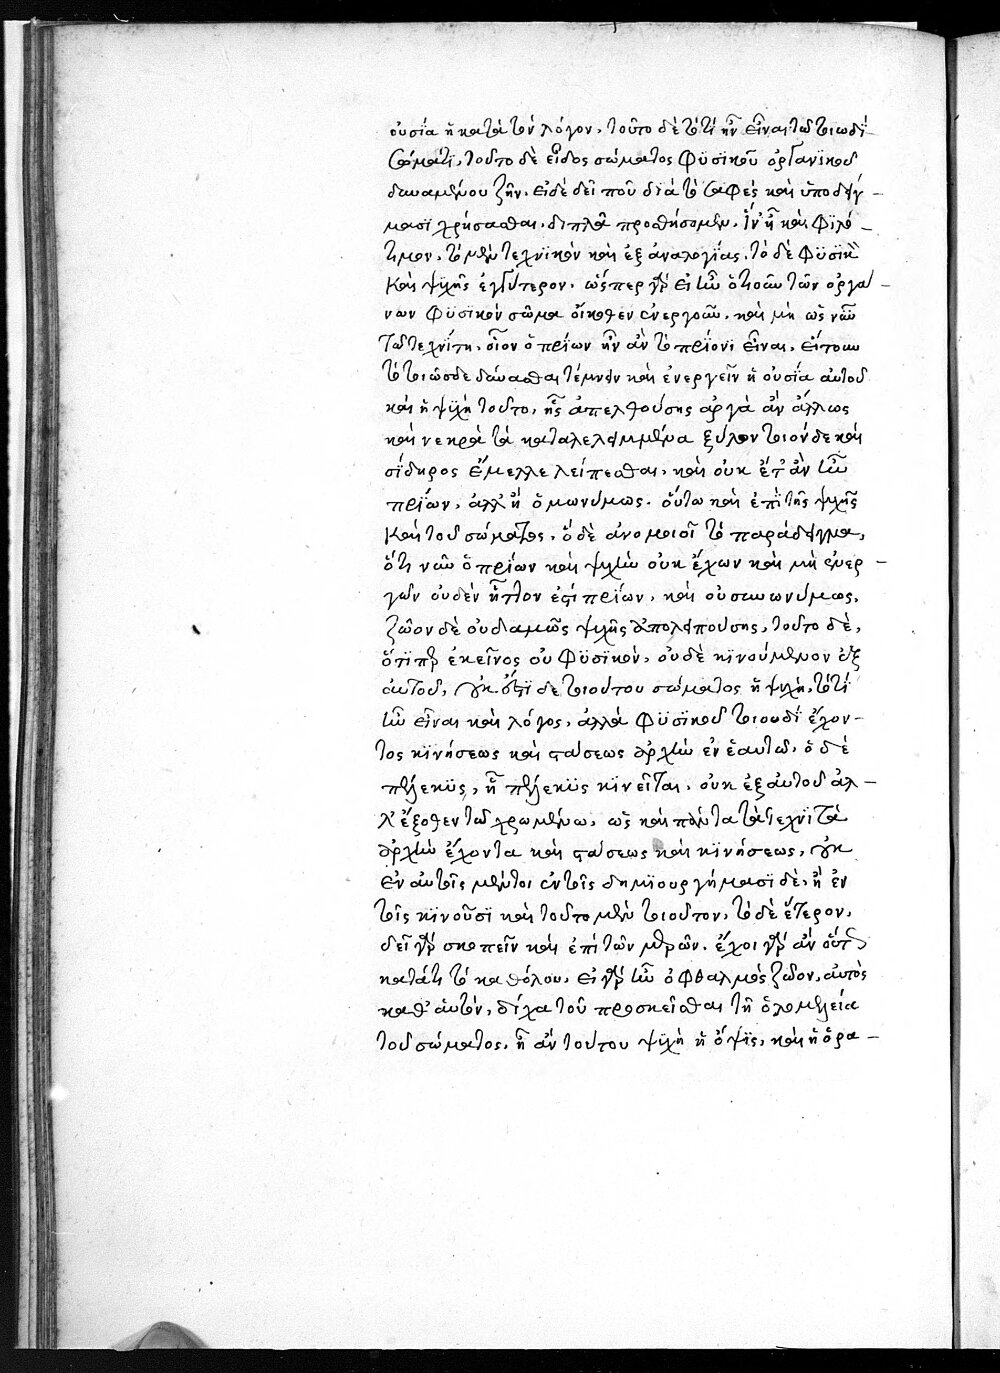 οὐσία ἡ κατὰ τὸν λόγον, τοῦτο δὲ τὸ τί ἦν εἶναι τῷ τοιῷδϊ
σώματϊ, τοῦτο δὲ εἶδος σώματος φϋσϊκοῦ ὀργανϊκοῦ
δυναμένου ζῆν. εἰ δὲ δεῖ που διὰ τὸ σαφὲς καὶ ὑποδείγ –
μασϊ χρήσασθαι, διπλᾶ προθήσομεν, ἵν' ᾖ καὶ φϊλό –
τιμον, τὸ μὲν τεχνϊκὸν καὶ ἐξ ἀναλογίας, τὸ δὲ φϋσϊκὸν
καὶ ψϋχῆς ἐγγύτερον. ὥσπερ γὰρ εἰ ἦν ὁτιοῦν τῶν ὀργά –
νων φϋσϊκὸν σῶμα οἴκοθεν ἐνεργοῦν, καὶ μὴ ὡς νῦν
τῷ τεχνίτῃ, οἷον ὁ πρίων ἦν ἂν τὸ πρίονι εἶναι, εἴτουν
τὸ τοιῶσδε δύνασθαι τέμνειν καὶ ἐνεργεῖν ἡ οὐσία αὐτοῦ
καὶ ἡ ψϋχὴ τοῦτο, ἧς ἀπελθούσης ἀργὰ ἂν ἄλλως
καὶ νεκρὰ τὰ καταλελειμμένα ξύλον τοιόνδε καὶ
σίδηρος ἔμελλε λείπεσθαι, καὶ οὐκ ἔτ' ἂν ἦν
πρίων, ἀλλ' ἢ ὁμωνύμως. οὕτω καὶ ἐπὶ τῆς ψϋχῆς
καὶ τοῦ σώματος, ὃ δὲ ἀνομοιοῖ τὸ παράδειγμα,
ὅτι νῦν ὁ πρίων καὶ ψϋχὴν οὐκ ἔχων καὶ μὴ ἐνερ –
γῶν οὐδὲν ἧττον ἐστὶ πρίων, καὶ οὐ συνωνύμως,
ζῷον δὲ οὐδαμῶς ψϋχῆς ἀπολειπούσης, τοῦτο δὲ,
ὅτϊπερ ἐκεῖνος οὐ φϋσϊκὸν, οὐδὲ κϊνούμενον ἐξ
αὑτοῦ, οὐκ ἔστϊ δὲ τοιούτου σώματος ἡ ψϋχὴ, τὸ τί
ἦν εἶναι καὶ λόγος, ἀλλὰ φϋσϊκοῦ τοιουδὶ ἔχον –
τος κϊνήσεως καὶ στάσεως ἀρχὴν ἐν ἑαυτῷ, ὁ δὲ
πέλεκϋς, ᾗ πέλεκϋς κϊνεῖται, οὐκ ἐξ αὑτοῦ ἀλ –
λ' ἔξοθεν τῷ χρωμένῳ, ὡς καὶ πάντα τὰ τεχνϊτὰ
ἀρχὴν ἔχοντα καὶ στάσεως καὶ κϊνήσεως, οὐκ
ἐν αὑτοῖς μέντοι ἐν τοῖς δημϊουργήμασϊ δὲ, ἢ ἐν
τοῖς κϊνοῦσϊ καὶ τοῦτο μὲν τοιοῦτον, τὸ δὲ ἕτερον,
δεῖ γὰρ σκοπεῖν καὶ ἐπὶ τῶν μερῶν. ἔχοι γὰρ ἂν οὕτω
κατά τι τὸ καθόλου, εἰ γὰρ ἦν ὁ ὀφθαλμὸς ζῷον, αὐτὸς
καθ' αὑτὸν, δίχα τοῦ προσκεῖσθαι τῇ ὁλομελείᾳ
τοῦ σώματος, ἦ ἂν τούτου ψϋχὴ ἡ ὄψϊς, καὶ ἡ ὅρα –